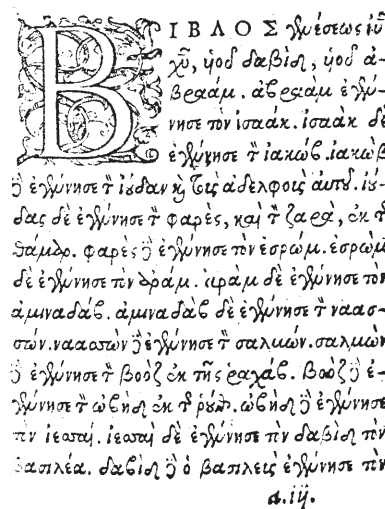 ΒΙΒΛΟΣ γενέσεως ἰῦ
χῦ, ὑοῦ δαβὶδ, ὑοῦ ἀ-
βραάμ. ἀβραὰμ ἐγέν-
νησε τὸν ἰσαάκ. ἰσαὰκ δὲ
ἐγέννησε τ̀ ἰακώβ. ἰακὼβ
δ̀ ἐγέννησε τ̀ ἰούδαν κỳ τοὺς ἀδελφοὺς ἀυτοῦ. ἰού-
δας δὲ ἐγέννησε τ̀ φαρὲς, καὶ τ̀ ζαρὰ, ἐκ τ͂
θάμαρ. φαρὲς δ̀ ἐγέννησε τὸν ἐσρώμ. ἐσρὼμ
δὲ ἐγέννησε τὸν ἀράμ. ἀρὰμ δὲ ἐγέννησε τὸν
ἀμιναδάβ. ἀμιναδὰβ δὲ ἐγέννησε τ̀ ναασ-
σών. ναασσὼν δ̀ ἐγέννησε τ̀ σαλμών. σαλμὼν
δ̀ ἐγέννησε τ̀ βοὸζ ἐκ τῆς ῥαχάβ. βοὸζ δ̀ ἐ-
γέννησε τ̀ ὠβὴδ ἐκ τ͂ ῥούθ. ὠβὴδ δ̀ ἐγέννησε
τὸν ἰεσσαί. ἰεσσαὶ δὲ ἐγέννησε τὸν δαβὶδ τὸν
βασιλέα. δαβὶδ δ̀ ὁ βασιλεὺς ἐγέννησε τὸν
a.iij.